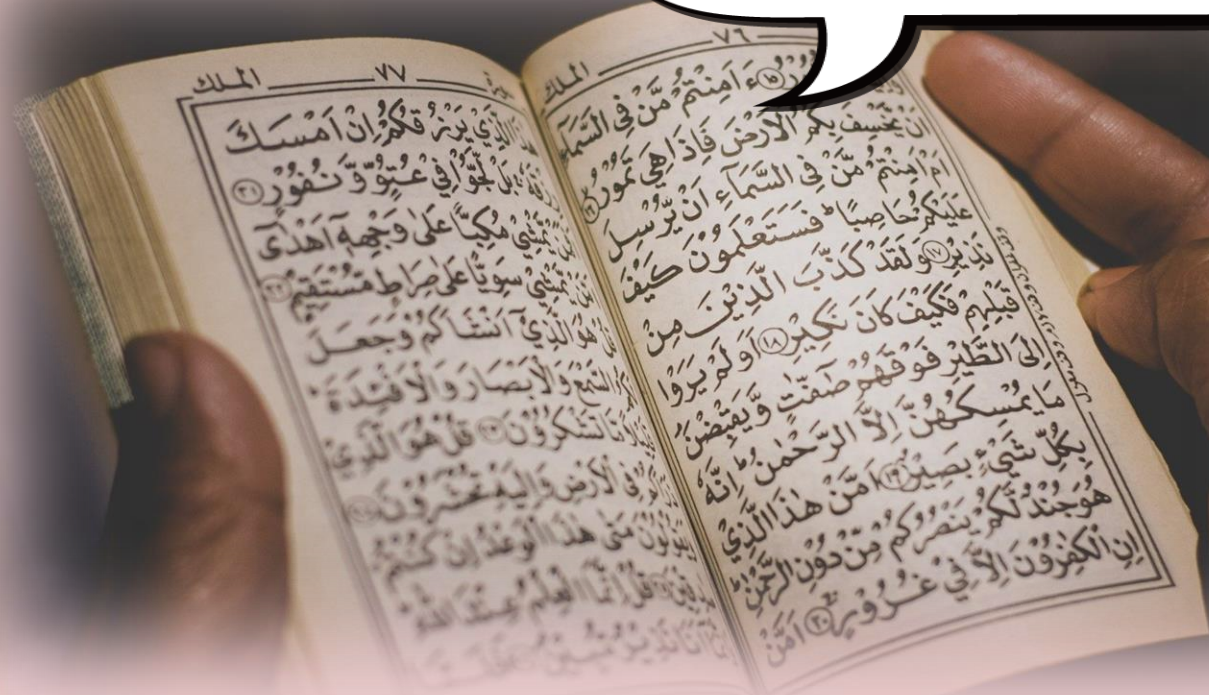 الملك
٧٦
ءَاَمِنْتُمْ مَّنْ فِى السَّمَآءِ
اَنْ يَّخْسِفَ بِكُمُ الْاَرْضَ فَاِذَا هِىَ تَمُوْرُ ۝١٦
اَمْ اَمِنْتُمْ مَّنْ فِى السَّمَآءِ اَنْ يُّرْسِلَ
عَلَيْكُمْ حَاصِبًا ؕ فَسَتَعْلَمُوْنَ كَيْفَ
نَذِيْرِ ۝١٧ وَلَقَدْ كَذَّبَ الَّذِيْنَ مِنْ
قَبْلِهِمْ فَكَيْفَ كَانَ نَكِيْرِ ۝١٨ اَوَلَمْ يَرَوْا
اِلَى الطَّيْرِ فَوْقَهُمْ صٰٓفّٰتٍ وَّيَقْبِضْنَ
مَا يُمْسِكُهُنَّ اِلَّا الرَّحْمٰنُ ؕ اِنَّهٗ
بِكُلِّ شَىْءٍ بَصِيْرٌ ۝١٩ اَمَّنْ هٰذَا الَّذِىْ
هُوَ جُنْدٌ لَّكُمْ يَنْصُرُكُمْ مِّنْ دُوْنِ الرَّحْمٰنِ ؕ
اِنِ الْكٰفِرُوْنَ اِلَّا فِىْ غُرُوْرٍ ۝٢٠ اَمَّنْ
الملك
٧٧
هٰذَا الَّذِىْ يَرْزُقُكُمْ اِنْ اَمْسَكَ
رِزْقَهٗ ۚ بَلْ لَّجُّوْا فِىْ عُتُوٍّ وَّنُفُوْرٍ ۝٢١
يَّمْشِىْ مُكِبًّا عَلٰى وَجْهِهٖٓ اَهْدٰٓى
يَّمْشِىْ سَوِيًّا عَلٰى صِرَاطٍ مُّسْتَقِيْمٍ ۝٢٢
قُلْ هُوَ الَّذِىْٓ اَنْشَاَكُمْ وَجَعَلَ
لَكُمُ السَّمْعَ وَالْاَبْصَارَ وَالْاَفْئِدَةَ ؕ
قَلِيْلًا مَّا تَشْكُرُوْنَ ۝٢٣ قُلْ هُوَ الَّذِىْ
ذَرَاَكُمْ فِى الْاَرْضِ وَاِلَيْهِ تُحْشَرُوْنَ ۝٢٤
وَيَقُوْلُوْنَ مَتٰى هٰذَا الْوَعْدُ اِنْ كُنْتُمْ
صٰدِقِيْنَ ۝٢٥ قُلْ اِنَّمَا الْعِلْمُ عِنْدَ اللّٰهِ
وَاِنَّمَآ اَنَا نَذِيْرٌ مُّبِيْنٌ